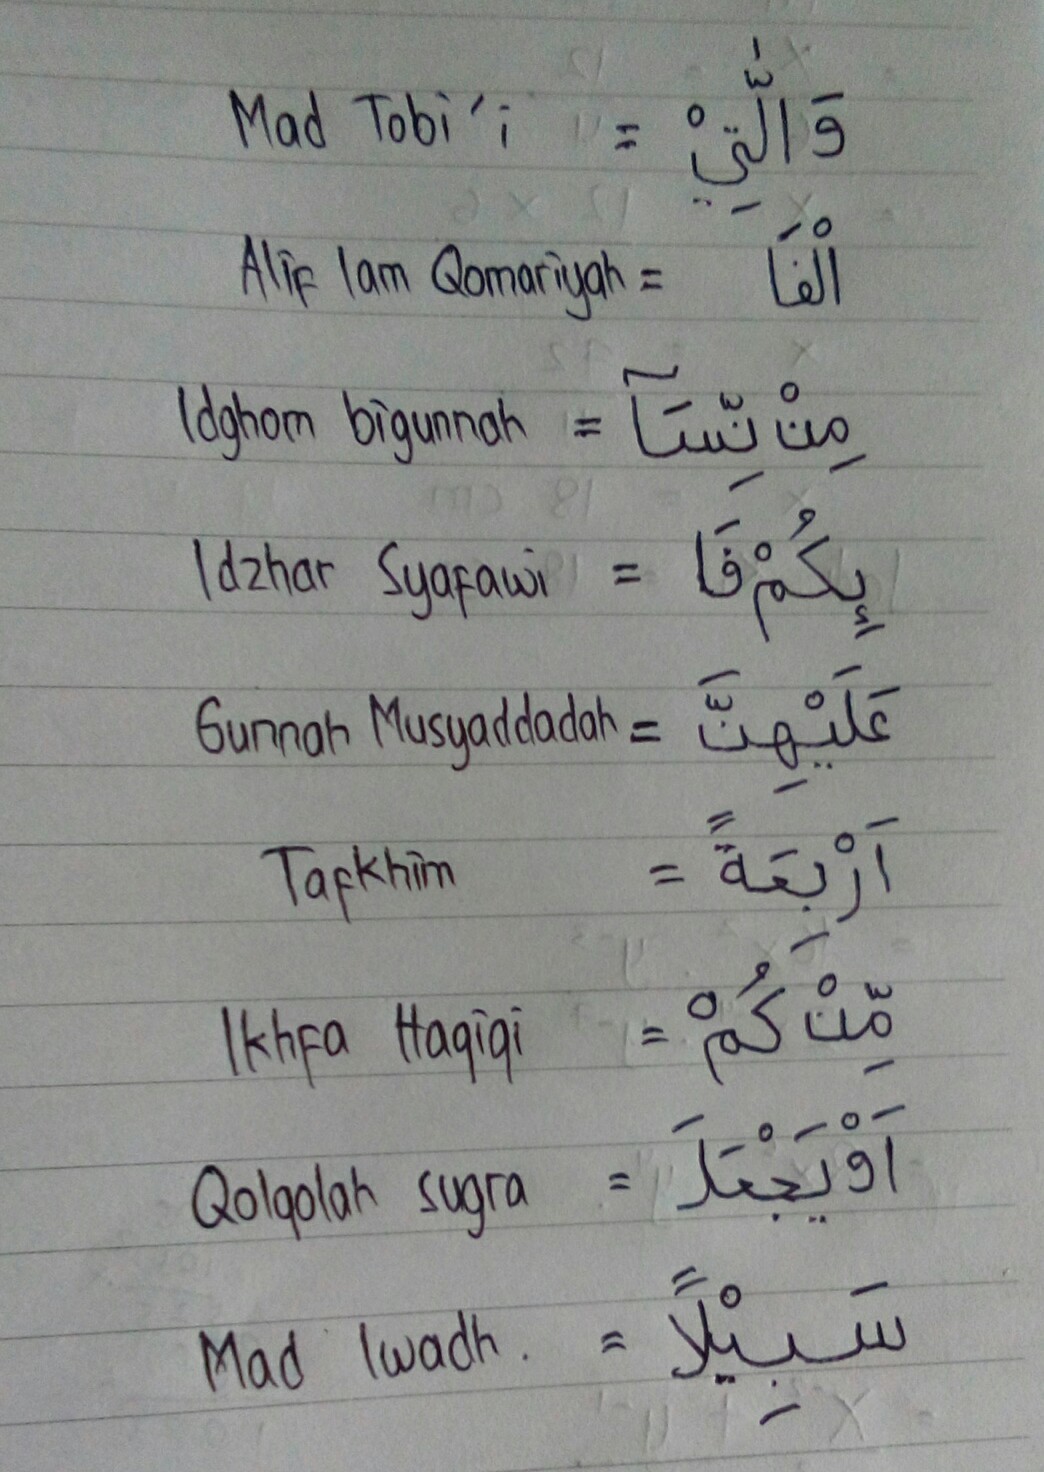 Mad Tobi'i = وَالّٰتِيْ
Alif lam Qomariyah = الْفَا
Idghom bigunnah = مِنْ نِّسَآ
Idzhar Syafawi = ىِٕكُمْ فَا
Gunnah Musyaddadah = عَلَيْهِنَّ
Tafkhim = اَرْبَعَةً
Ikhfa Haqiqi = مِّنْكُمْ
Qolqolah sugra = اَوْ يَجْعَلَ
Mad Iwadh. = سَبِيْلًا